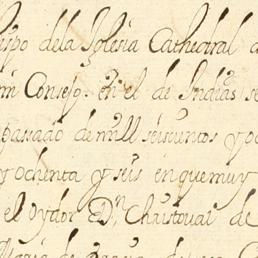 ispo dela Iglesia Cathedral d
mi Consejo. en el de Indias se
passado de mill seiscientos y o
y ochenta y seis en que muy
el oydor Dn Christoual de
Maria de